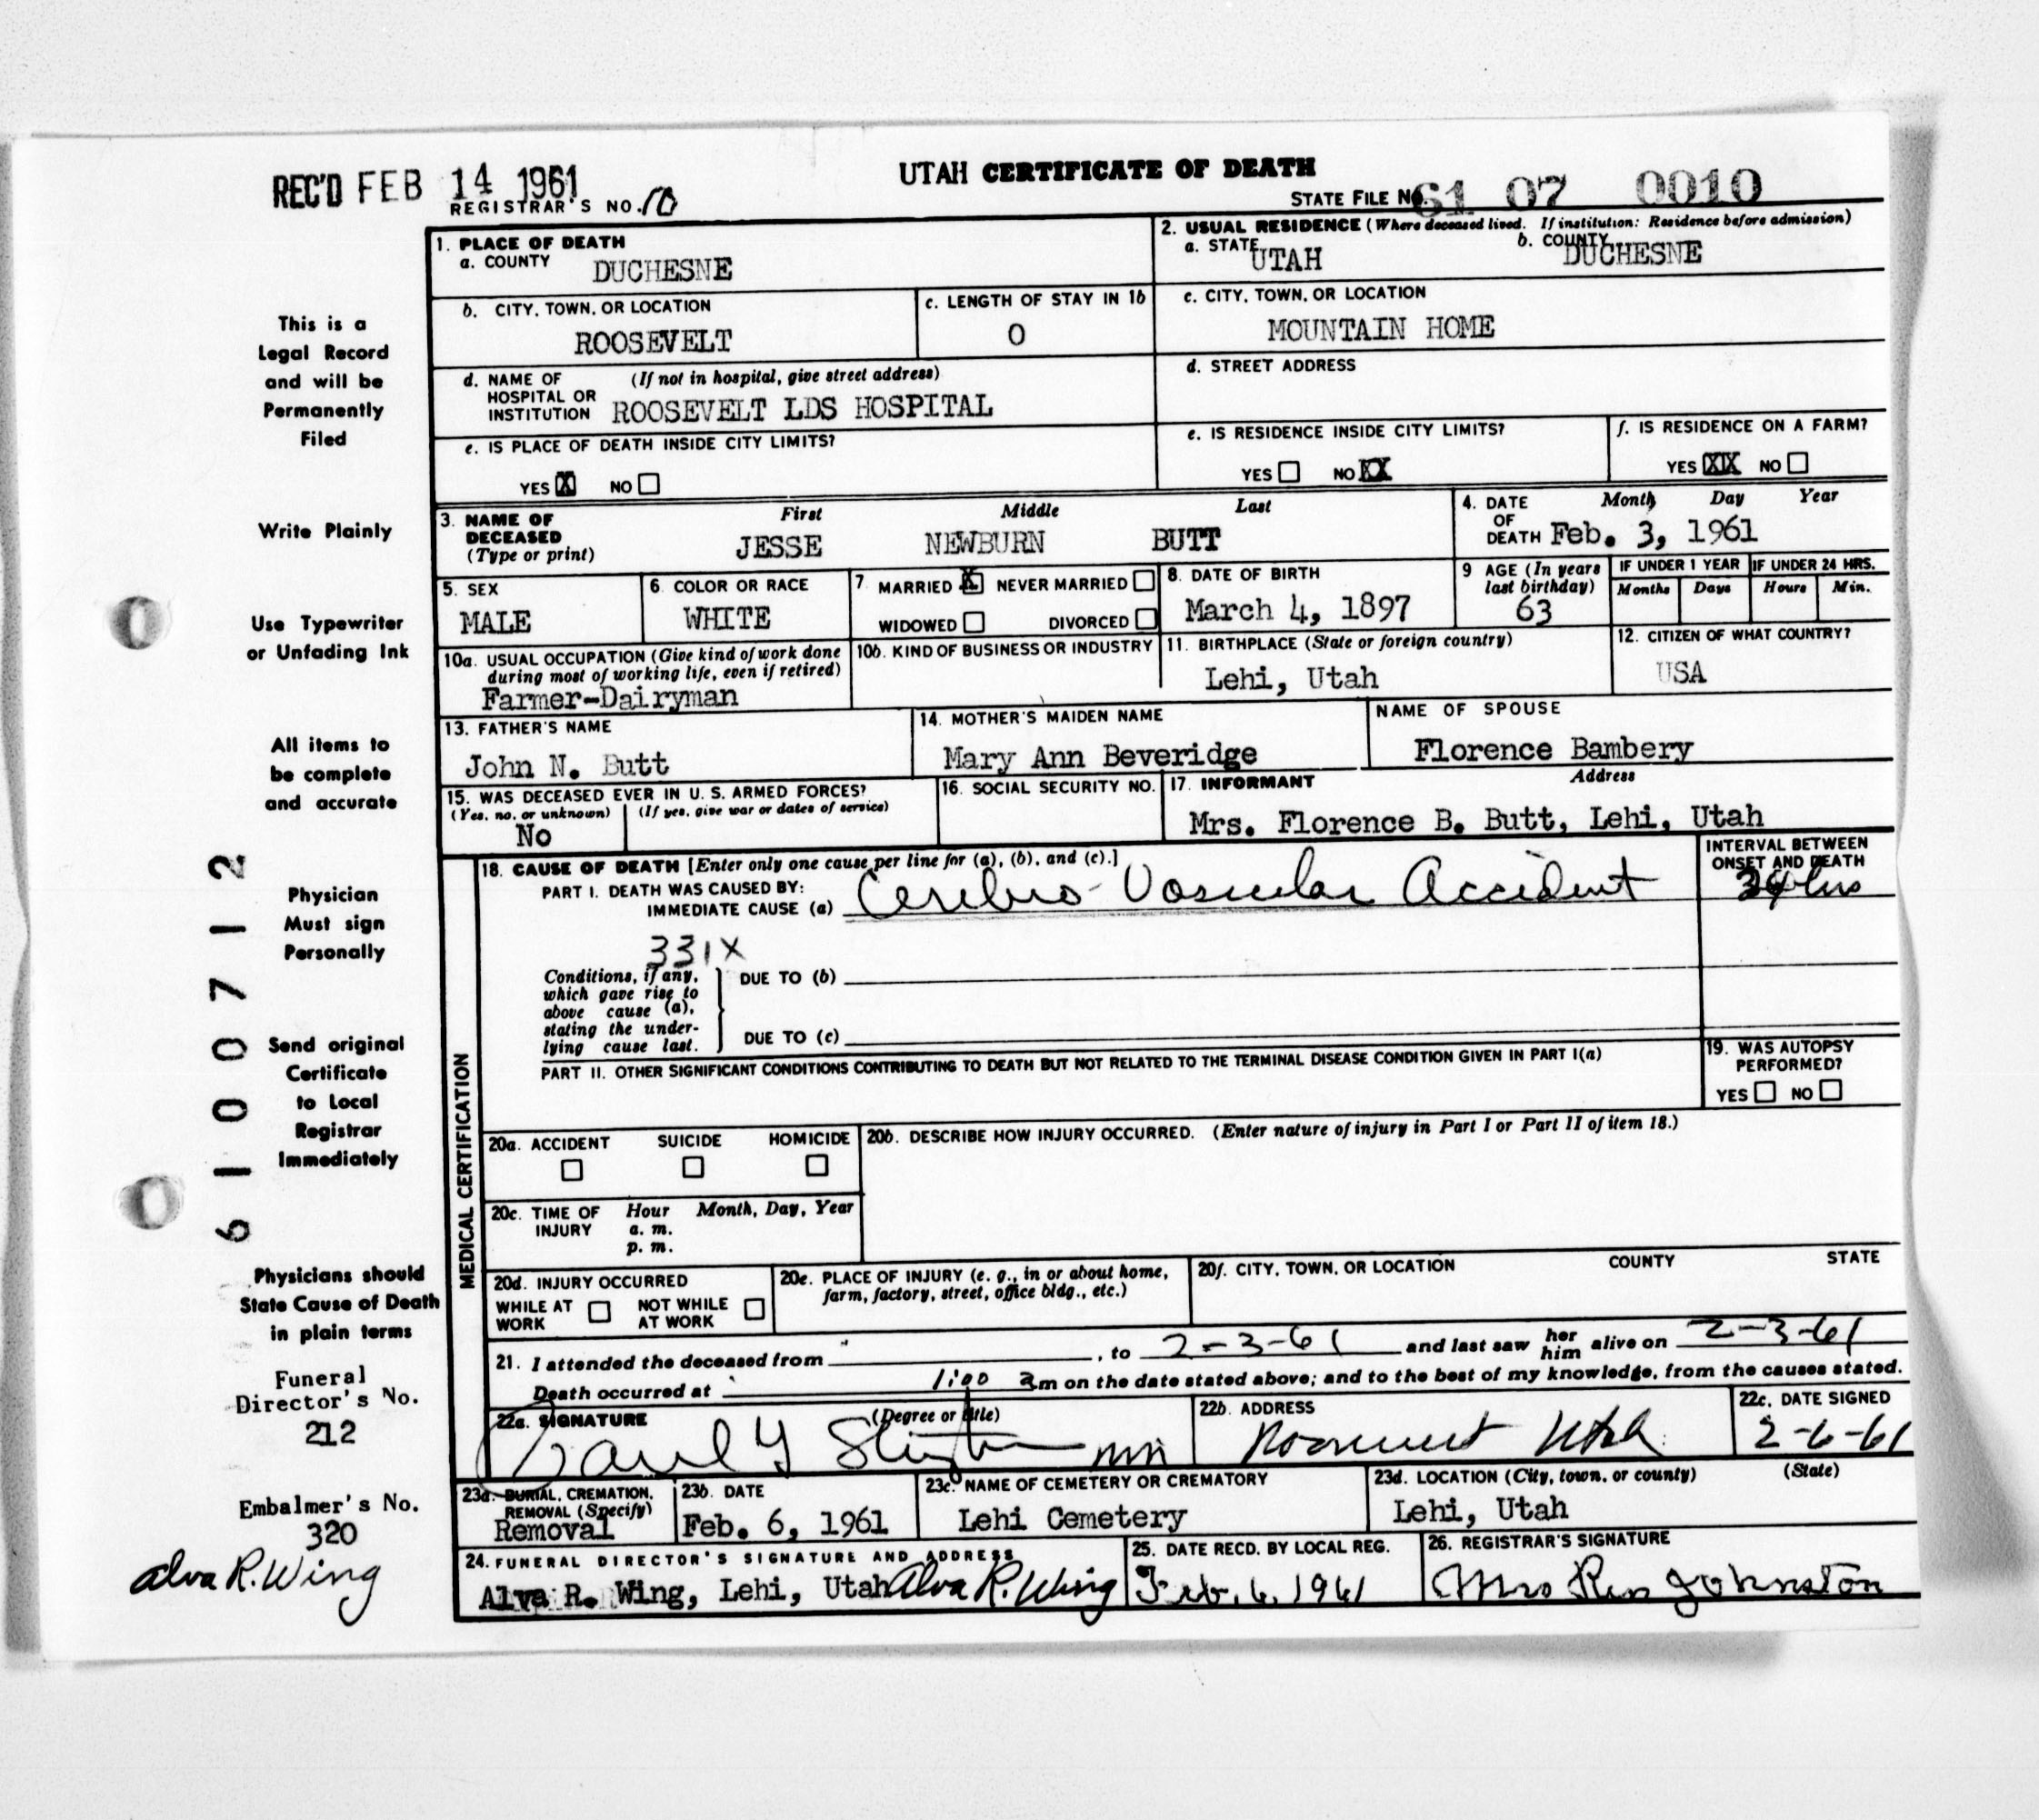 REC'D FEB 14 1961
UTAH CERTIFICATE OF DEATH
REGISTRAR'S NO. 10
STATE FILE NO. 61 07 0010
1. PLACE OF DEATH
a. COUNTY DUCHESNE
2. USUAL RESIDENCE (Where deceased lived. If institution: Residence before admission)
a. STATE UTAH b. COUNTY DUCHESNE
b. CITY, TOWN, OR LOCATION
ROOSEVELT
c. LENGTH OF STAY IN 1b
0
c. CITY, TOWN, OR LOCATION
MOUNTAIN HOME
d. NAME OF HOSPITAL OR INSTITUTION (If not in hospital, give street address)
ROOSEVELT LDS HOSPITAL
d. STREET ADDRESS
e. IS PLACE OF DEATH INSIDE CITY LIMITS?
YES X NO
e. IS RESIDENCE INSIDE CITY LIMITS?
YES NO XX
f. IS RESIDENCE ON A FARM?
YES XX NO
3. NAME OF DECEASED (Type or print)
First Middle Last
JESSE NEWBURN BUTT
4. DATE OF DEATH Month Day Year
Feb. 3, 1961
5. SEX
MALE
6. COLOR OR RACE
WHITE
7. MARRIED X NEVER MARRIED
WIDOWED DIVORCED
8. DATE OF BIRTH
March 4, 1897
9 AGE (In years last birthday)
63
IF UNDER 1 YEAR
Months Days
IF UNDER 24 HRS.
Hours Min.
10a. USUAL OCCUPATION (Give kind of work done during most of working life, even if retired)
Farmer-Dairyman
10b. KIND OF BUSINESS OR INDUSTRY
11. BIRTHPLACE (State or foreign country)
Lehi, Utah
12. CITIZEN OF WHAT COUNTRY?
USA
13. FATHER'S NAME
John N. Butt
14. MOTHER'S MAIDEN NAME
Mary Ann Beveridge
NAME OF SPOUSE
Florence Bambery
15. WAS DECEASED EVER IN U. S. ARMED FORCES?
(Yes, no, or unknown) (If yes, give war or dates of service)
No
16. SOCIAL SECURITY NO.
17. INFORMANT Address
Mrs. Florence B. Butt, Lehi, Utah
MEDICAL CERTIFICATION
18. CAUSE OF DEATH [Enter only one cause per line for (a), (b), and (c).]
PART I. DEATH WAS CAUSED BY:
IMMEDIATE CAUSE (a) Cerebro-Vascular Accident
INTERVAL BETWEEN ONSET AND DEATH
hrs
331X
Conditions, if any, which gave rise to above cause (a), stating the underlying cause last.
DUE TO (b)
DUE TO (c)
PART II. OTHER SIGNIFICANT CONDITIONS CONTRIBUTING TO DEATH BUT NOT RELATED TO THE TERMINAL DISEASE CONDITION GIVEN IN PART I(a)
19. WAS AUTOPSY PERFORMED?
YES NO
20a. ACCIDENT SUICIDE HOMICIDE
20b. DESCRIBE HOW INJURY OCCURRED. (Enter nature of injury in Part I or Part II of item 18.)
20c. TIME OF INJURY Hour Month, Day, Year
a. m.
p. m.
20d. INJURY OCCURRED
WHILE AT WORK NOT WHILE AT WORK
20e. PLACE OF INJURY (e. g., in or about home, farm, factory, street, office bldg., etc.)
20f. CITY, TOWN, OR LOCATION COUNTY STATE
21. I attended the deceased from , to 2-3-61 and last saw her him alive on 2-3-61
Death occurred at 1:00 am on the date stated above; and to the best of my knowledge, from the causes stated.
22a. SIGNATURE (Degree or title)
Paul G
22b. ADDRESS
Roosevelt Utah
22c. DATE SIGNED
2-6-61
23a. BURIAL, CREMATION, REMOVAL (Specify)
Removal
23b. DATE
Feb. 6, 1961
23c. NAME OF CEMETERY OR CREMATORY
Lehi Cemetery
23d. LOCATION (City, town, or county) (State)
Lehi, Utah
24. FUNERAL DIRECTOR'S SIGNATURE AND ADDRESS
Alva R. Wing, Lehi, Utah Alva R. Wing
25. DATE RECD. BY LOCAL REG.
Feb. 6, 1961
26. REGISTRAR'S SIGNATURE
Mrs Johnston
This is a
Legal Record
and will be
Permanently
Filed
Write Plainly
Use Typewriter
or Unfading Ink
All items to
be complete
and accurate
Physician
Must sign
Personally
Send original
Certificate
to Local
Registrar
Immediately
Physicians should
State Cause of Death
in plain terms
Funeral
Director's No.
212
Embalmer's No.
320
Alva R. Wing
61 0 0712